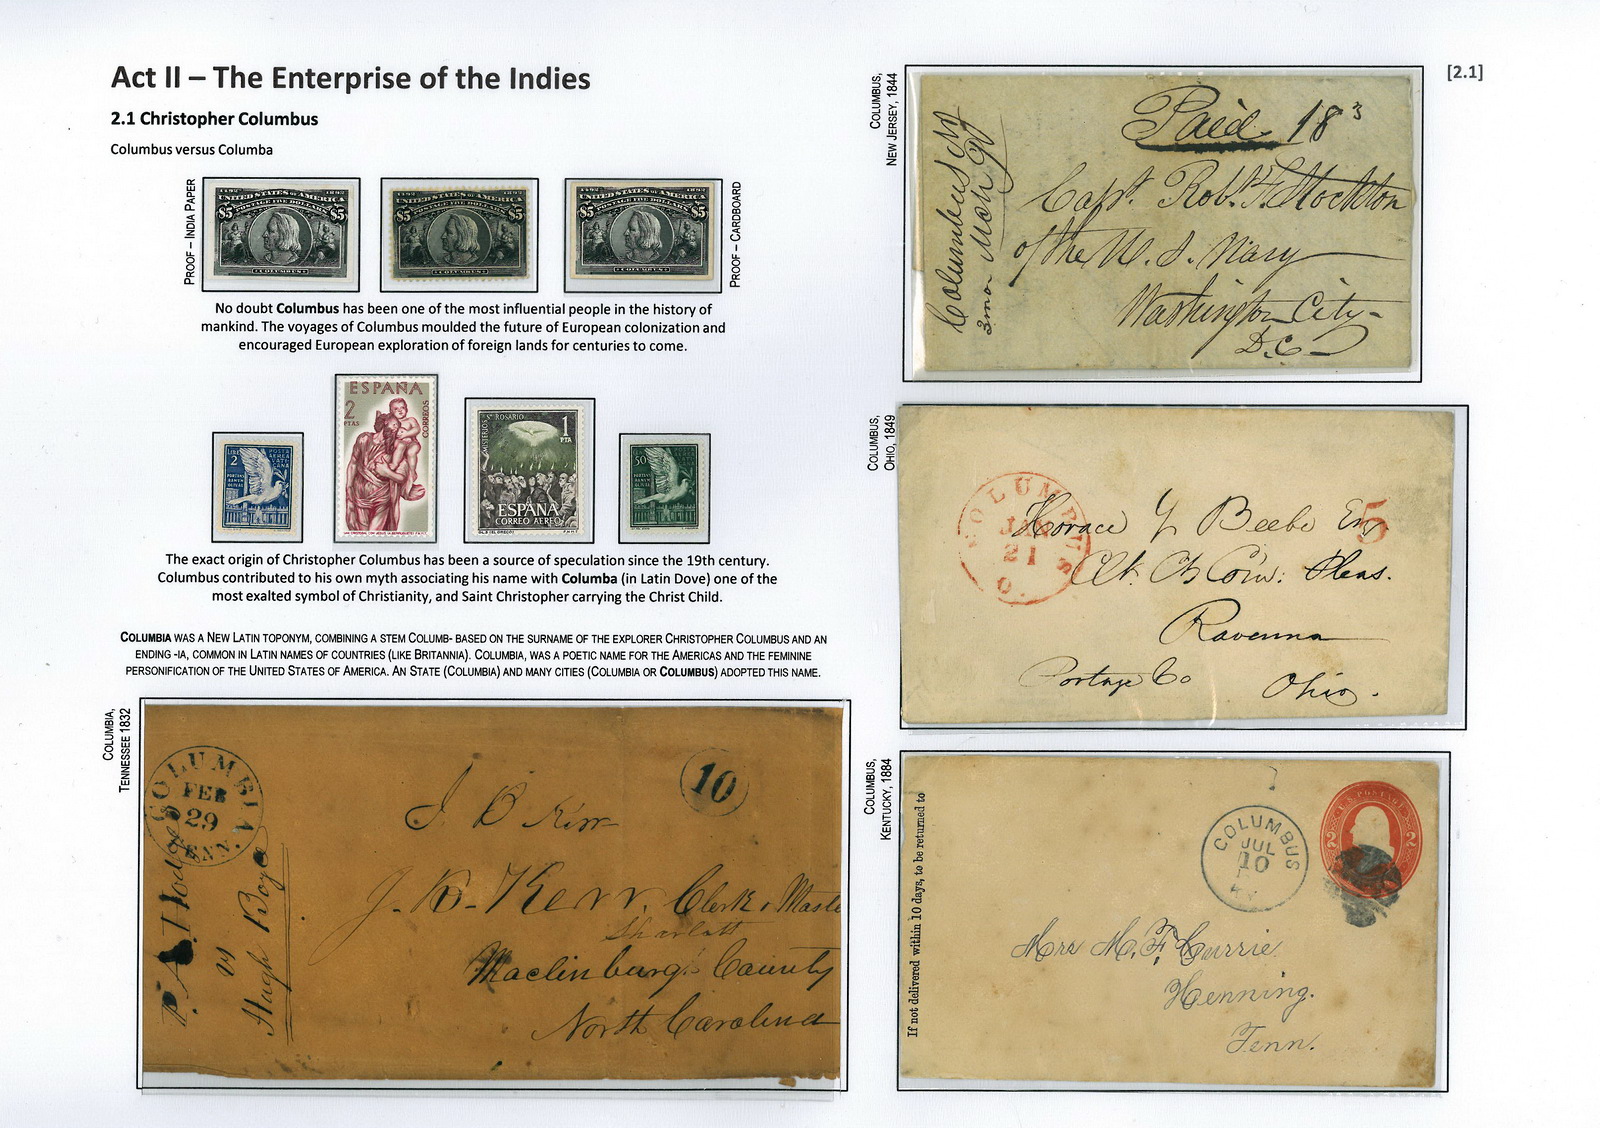 Act II – The Enterprise of the Indies
[2.1]
2.1 Christopher Columbus
Columbus versus Columba
PROOF – INDIA PAPER
1492 1892
UNITED STATES OF AMERICA
POSTAGE FIVE DOLLARS
$5 $5
COLUMBUS
1492 1892
UNITED STATES OF AMERICA
POSTAGE FIVE DOLLARS
$5 $5
COLUMBUS
1492 1892
UNITED STATES OF AMERICA
POSTAGE FIVE DOLLARS
$5 $5
COLUMBUS
PROOF – CARDBOARD
No doubt Columbus has been one of the most influential people in the history of
mankind. The voyages of Columbus moulded the future of European colonization and
encouraged European exploration of foreign lands for centuries to come.
LIRE
2
POSTA
AEREA
VATI
CANA
PORTANS
RAMUM
OLIVAE
ESPAÑA
2
PTAS
CORREOS
MISTERIOS Sº ROSARIO
1
PTA
ESPAÑA
CORREO AEREO
50
POSTA
AEREA
VATI
CANA
PORTANS
RAMUM
OLIVAE
The exact origin of Christopher Columbus has been a source of speculation since the 19th century.
Columbus contributed to his own myth associating his name with Columba (in Latin Dove) one of the
most exalted symbol of Christianity, and Saint Christopher carrying the Christ Child.
COLUMBIA WAS A NEW LATIN TOPONYM, COMBINING A STEM COLUMB- BASED ON THE SURNAME OF THE EXPLORER CHRISTOPHER COLUMBUS AND AN
ENDING -IA, COMMON IN LATIN NAMES OF COUNTRIES (LIKE BRITANNIA). COLUMBIA, WAS A POETIC NAME FOR THE AMERICAS AND THE FEMININE
PERSONIFICATION OF THE UNITED STATES OF AMERICA. AN STATE (COLUMBIA) AND MANY CITIES (COLUMBIA OR COLUMBUS) ADOPTED THIS NAME.
COLUMBIA,
TENNESSEE 1832
COLUMBIA
FEB
29
TEN.
10
J. B. Kerr
J. B. Kerr, Clerk & Maste
Sharlott
Maclinburg County
North Carolina
vs
Hugh Boyd
COLUMBUS,
NEW JERSEY, 1844
Columbus NJ
3 mo
Paid 18 3
Capt. Rob. F. Stockton
of the U. S. Navy
Washington City
D.C.
COLUMBUS,
OHIO, 1849
COLUMBUS
JAN
21
O.
5
Horace Y Beebe Esq
Clk. Ct Com: Pleas.
Ravenna
Portage Co Ohio.
COLUMBUS,
KENTUCKY, 1884
If not delivered within 10 days, to be returned to
COLUMBUS
JUL
10
KY.
U.S. POSTAGE
2 2
Mrs M. F. Currie
Henning.
Tenn.